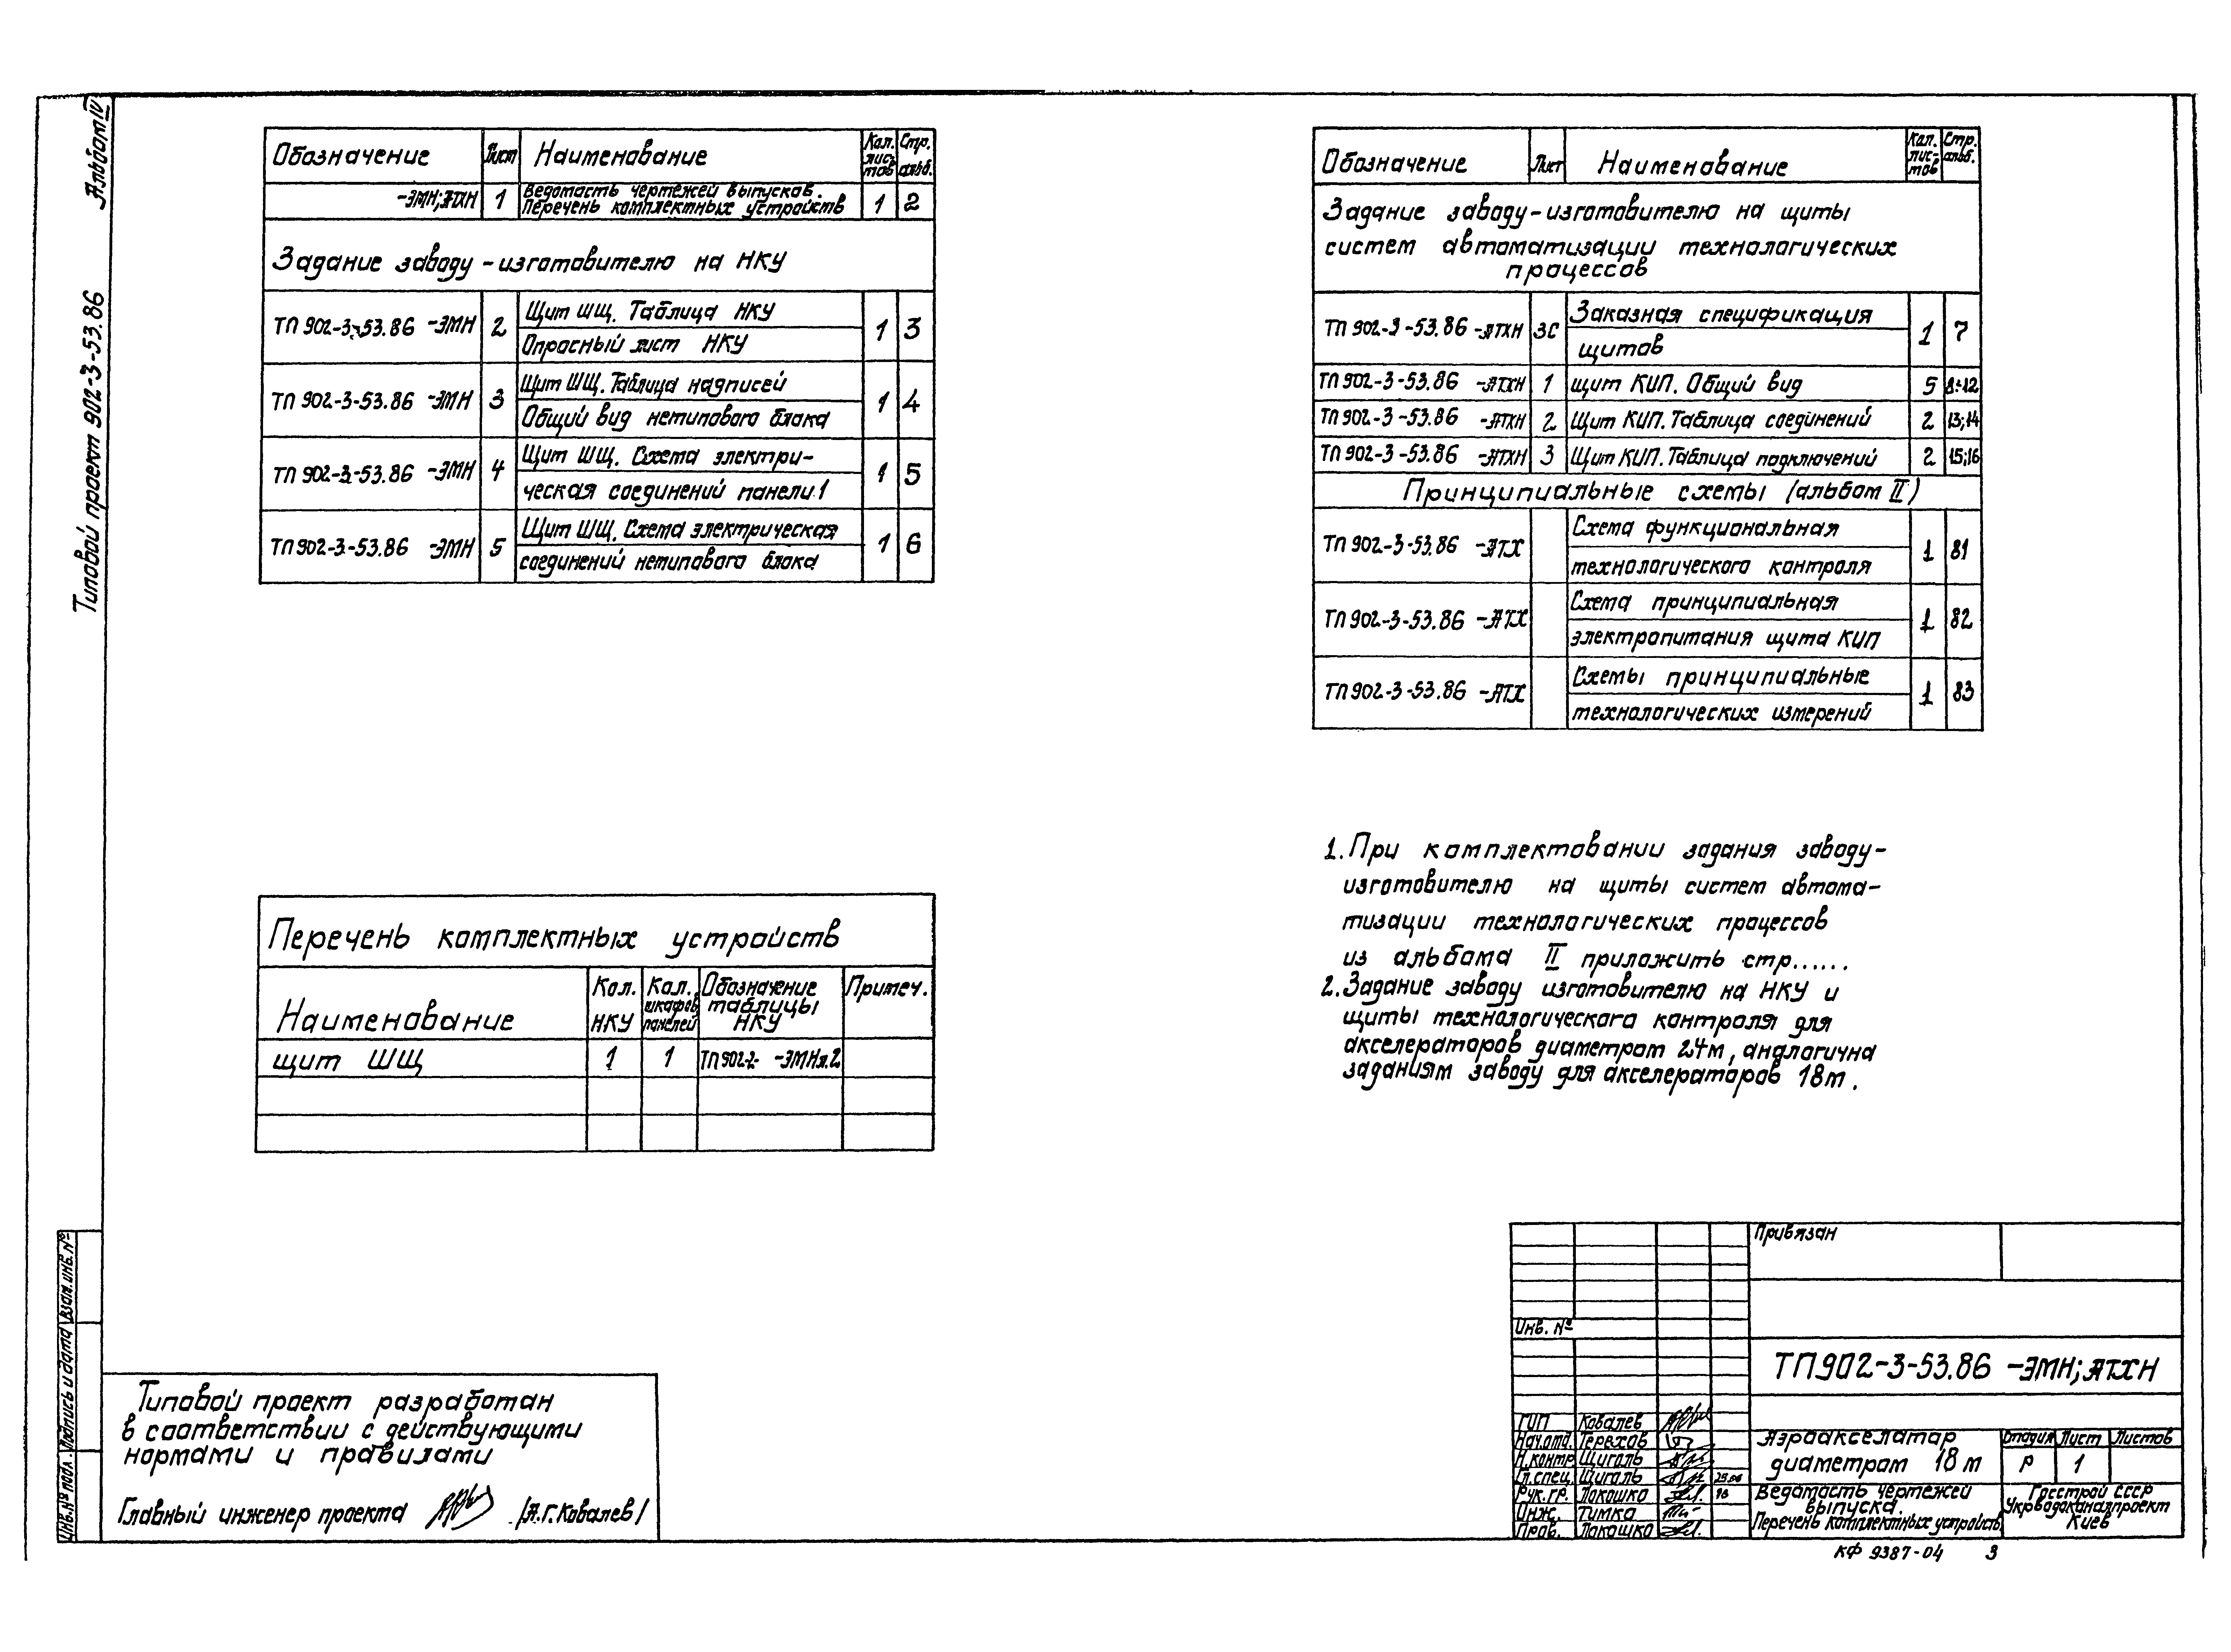 Альбом IV
Типовой проект 902-3-53.86
Обозначение Лист Наименование Кол. лис-тов Стр. альб.
-ЭМН; АТХН 1 Ведомость чертежей выпусков. 1 2
Перечень комплектных устройств
Задание заводу-изготовителю на НКУ
ТП 902-3-53.86 -ЭМН 2 Щит ШЩ. Таблица НКУ 1 3
Опросный лист НКУ
ТП 902-3-53.86 -ЭМН 3 Щит ШЩ. Таблица надписей 1 4
Общий вид нетипового блока
ТП 902-3-53.86 -ЭМН 4 Щит ШЩ. Схема электри- 1 5
ческая соединений панели 1
ТП 902-3-53.86 -ЭМН 5 Щит ШЩ. Схема электрическая 1 6
соединений нетипового блока
Перечень комплектных устройств
Наименование Кол. НКУ Кол. шкафов, панелей Обозначение таблицы НКУ Примеч.
щит ШЩ 1 1 ТП 902-2- -ЭМН л.2
Обозначение Лист Наименование Кол. лис-тов Стр. альб.
Задание заводу-изготовителю на щиты
систем автоматизации технологических
процессов
ТП 902-3-53.86 -АТХН ЗС Заказная спецификация 1 7
щитов
ТП 902-3-53.86 -АТХН 1 щит КИП. Общий вид 5 8÷12
ТП 902-3-53.86 -АТХН 2 Щит КИП. Таблица соединений 2 13;14
ТП 902-3-53.86 -АТХН 3 Щит КИП. Таблица подключений 2 15;16
Принципиальные схемы (альбом II)
ТП 902-3-53.86 -АТХ Схема функциональная 1 81
технологического контроля
ТП 902-3-53.86 -АТХ Схема принципиальная 1 82
электропитания щита КИП
ТП 902-3-53.86 -АТХ Схемы принципиальные 1 83
технологических измерений
1. При комплектовании задания заводу-
изготовителю на щиты систем автома-
тизации технологических процессов
из альбома II приложить стр......
2. Задание заводу изготовителю на НКУ и
щиты технологического контроля для
акселераторов диаметром 24м, аналогична
заданиям заводу для акселераторов 18м.
Типовой проект разработан
в соответствии с действующими
нормами и правилами
Главный инженер проекта /А.Г.Ковалев/
Инв.№ подл. Подпись и дата Взам.инв.№
Привязан
Инв. №
ТП902-3-53.86 -ЭМН; АТХН
ГИП Ковалев
Нач.отд. Терехов
Н.контр. Щигаль
Гл.спец. Щигаль
Рук.гр. Локошко
Инж. Тимко
Пров. Локошко
Аэроакселатор
диаметром 18 м
Стадия Лист Листов
Р 1
Ведомость чертежей
выпуска.
Перечень комплектных устройств
Госстрой СССР
Укрводоканалпроект
Киев
КФ 9387-04 3